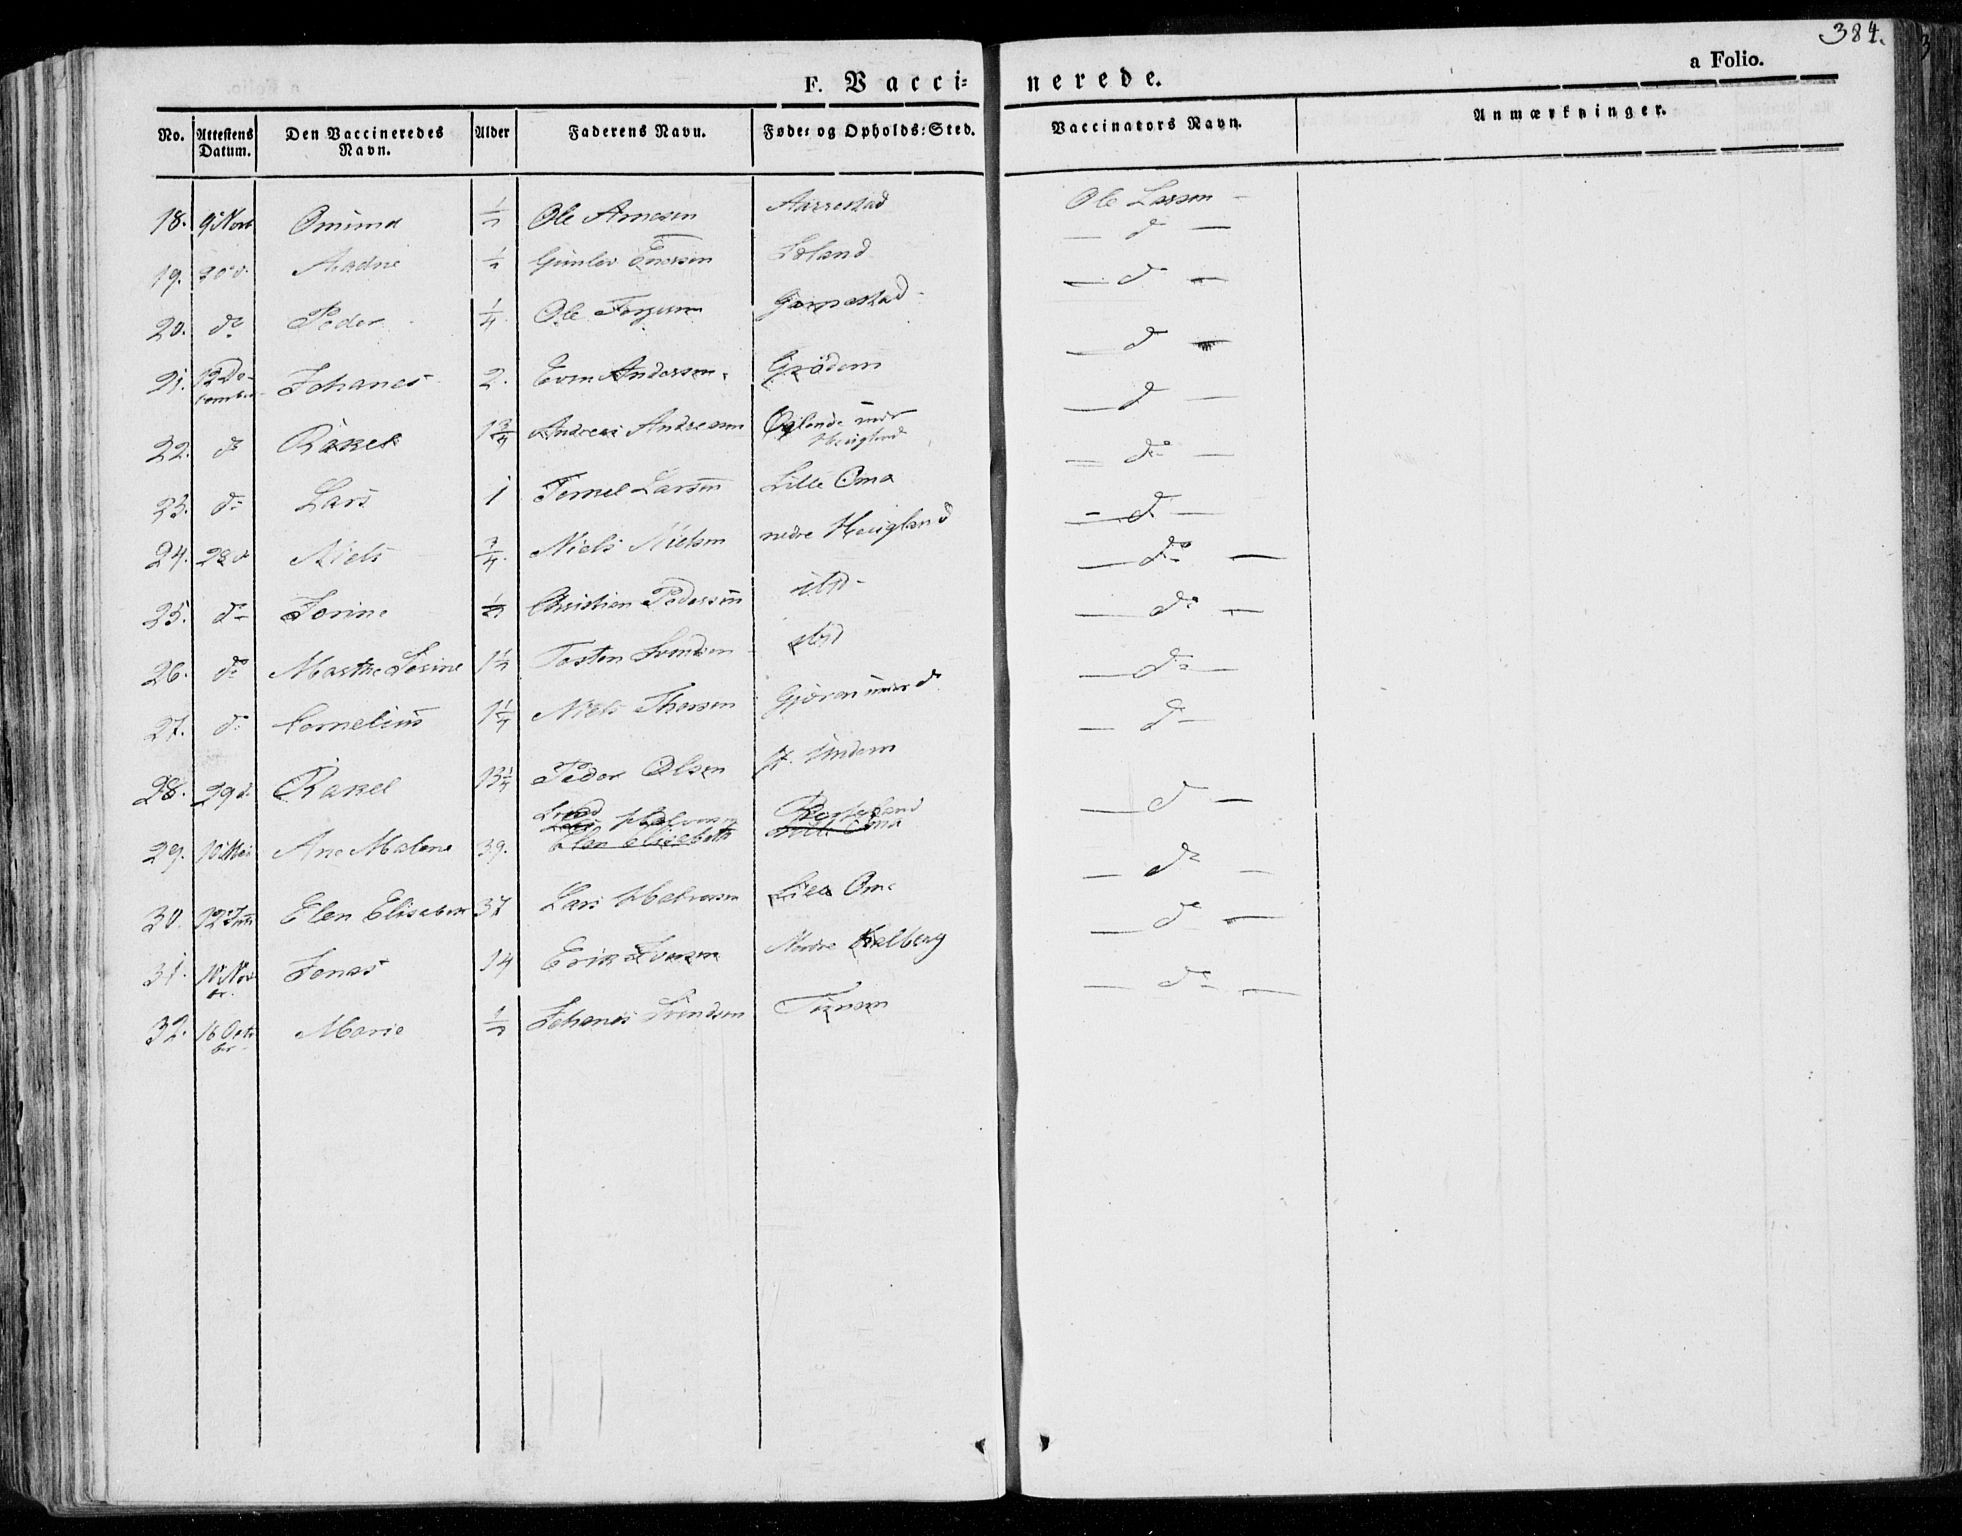 384.
F. Vacci= nerede. a Folio.
No. Attestens Datum. Den Vaccineredes Navn. Alder Faderens Navn. Føde= og Opholds=Sted. Vaccinators Navn. Anmærkninger.
18. 9 Novb Omund 1/2 Ole Arnesen Aarrestad Ole Larsen –
19. 20 d. Madne 1/2 Gunlev Løland — d —
20. do Peder 1/4 Ole Torgersen Garpestad — d —
21. 12 December Johanes 2. Even Andersen. Grödem — d —
22. do Rakel 1 3/4 Andreas Andreasen Øglende under Høigland — d —
23. do Lars 1 Tørnes Larsen Lille Oma — do —
24. 28 d Niels 3/4 Niels Nielsen nedre Høigland — d —
25. do Jorine 1/2 Christian Pedersen ibid — do —
26. do Marthe Serine 1 1/2 Tosten Svendsen ibid — do —
27. do Cornelius 1 1/4 Niels Thorsen Gjøren under do — do —
28. 29 d. Rakel 13 1/4 Peder Olsen st. Undem — d —
29. 10 Mai Ane Malene 39. Lars Halvorsen Elen Elisabeth Lille Oma — d —
30. 12 Juni Elen Elisabeth 37 Lars Halvorsen Lille Oma — do
31. 10 Novbr. Jonas 14 Erik Iversen Nordre Kalberg — do —
32. 16 Octbr Marie 1/2 Johanes Svendsen Tunem — do —